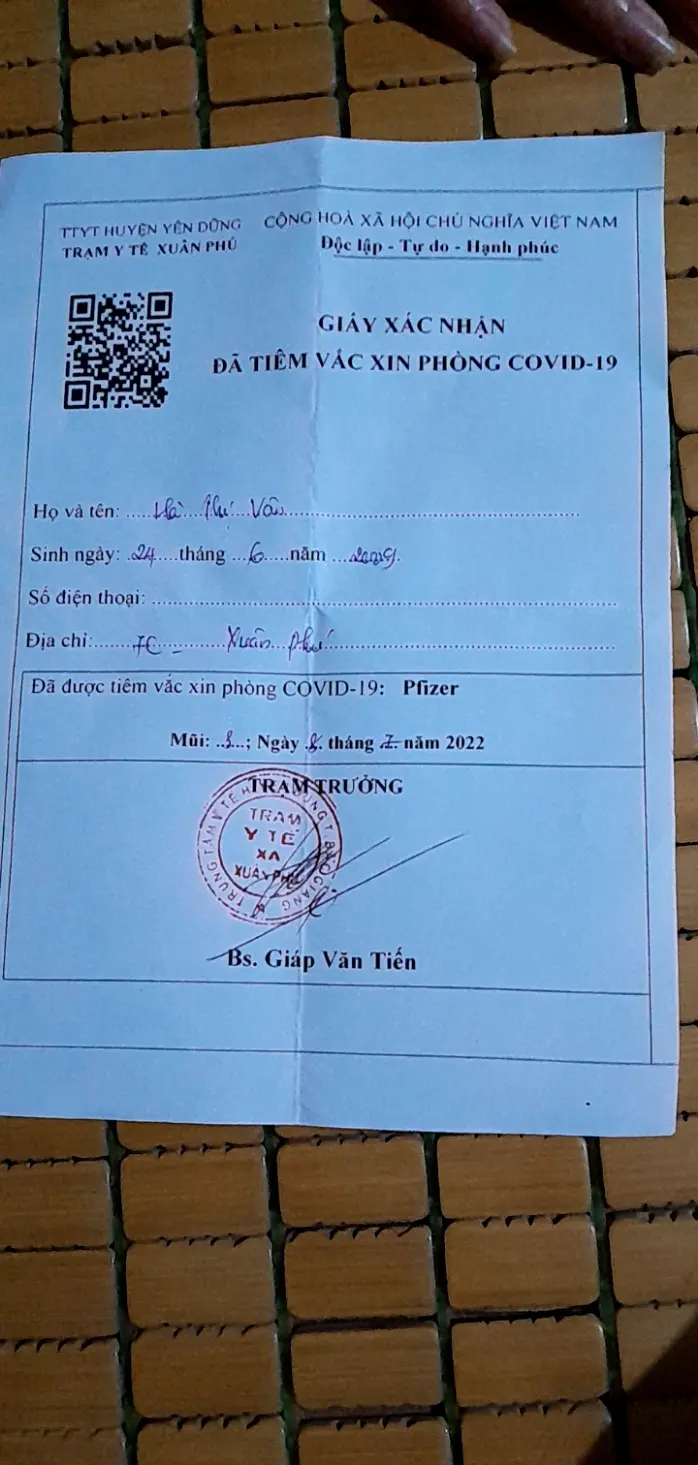 TTYT HUYỆN YÊN DŨNG
TRẠM Y TẾ XUÂN PHÚ
CỘNG HOÀ XÃ HỘI CHỦ NGHĨA VIỆT NAM
Độc lập - Tự do - Hạnh phúc
GIẤY XÁC NHẬN
ĐÃ TIÊM VẮC XIN PHÒNG COVID-19
Họ và tên: Vân
Sinh ngày: 24 tháng 6 năm
Số điện thoại:
Địa chỉ: Xuân Phú
Đã được tiêm vắc xin phòng COVID-19: Pfizer
Mũi: ; Ngày tháng năm 2022
TRẠM TRƯỞNG
TRẠM
Y TẾ
XÃ
XUÂN PHÚ
Bs. Giáp Văn Tiến